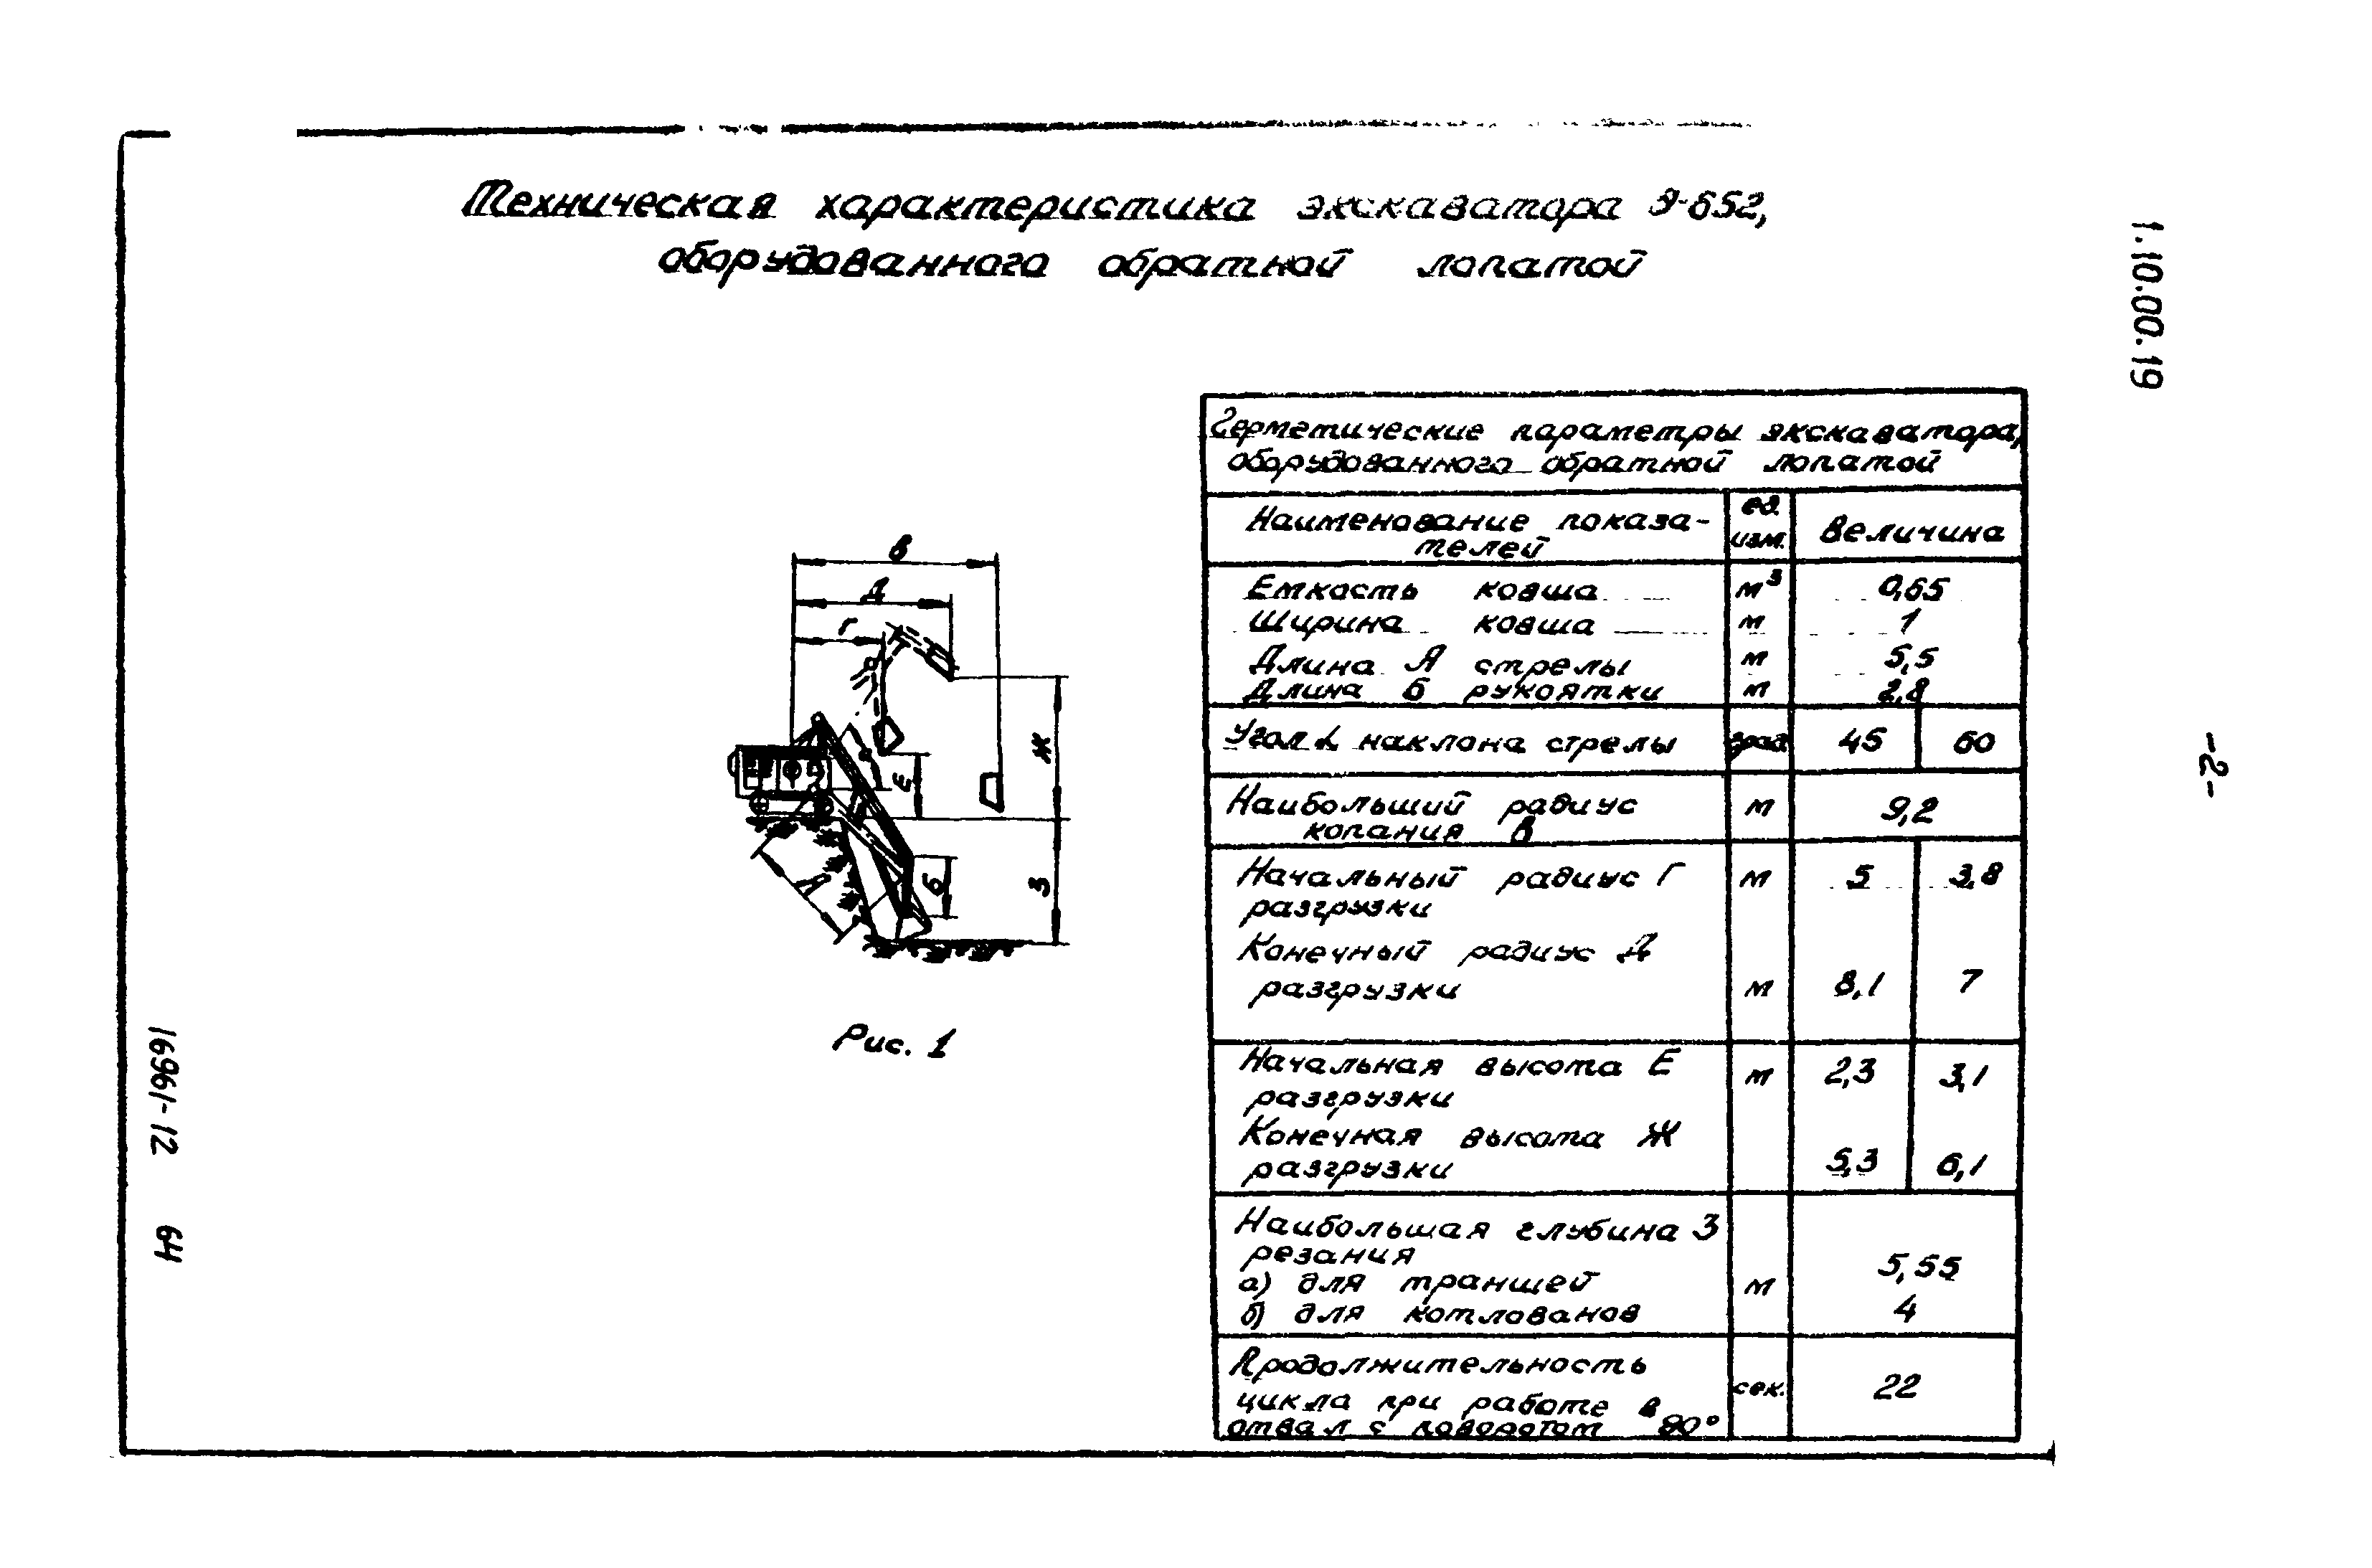 Техническая характеристика экскаватора Э-652,
оборудованного обратной лопатой
1.10.00.19
-2-
в
Д
г
Ж
Е
А
Б
З
Рис. 1
Герметические параметры экскаватора,
оборудованного обратной лопатой
Наименование показа-
телей
ед.
изм.
Величина
Емкость ковша м³ 0,65
Ширина ковша м 1
Длина А стрелы м 5,5
Длина Б рукоятки м 2,8
Угол α наклона стрелы град 45 60
Наибольший радиус м 9,2
копания В
Начальный радиус Г м 5 3,8
разгрузки
Конечный радиус Д
разгрузки м 8,1 7
Начальная высота Е м 2,3 3,1
разгрузки
Конечная высота Ж
разгрузки 5,3 6,1
Наибольшая глубина З
резания
а) для траншей м 5,55
б) для котлованов 4
Продолжительность
цикла при работе в сек. 22
отвал с поворотом 90°
16961-12 64